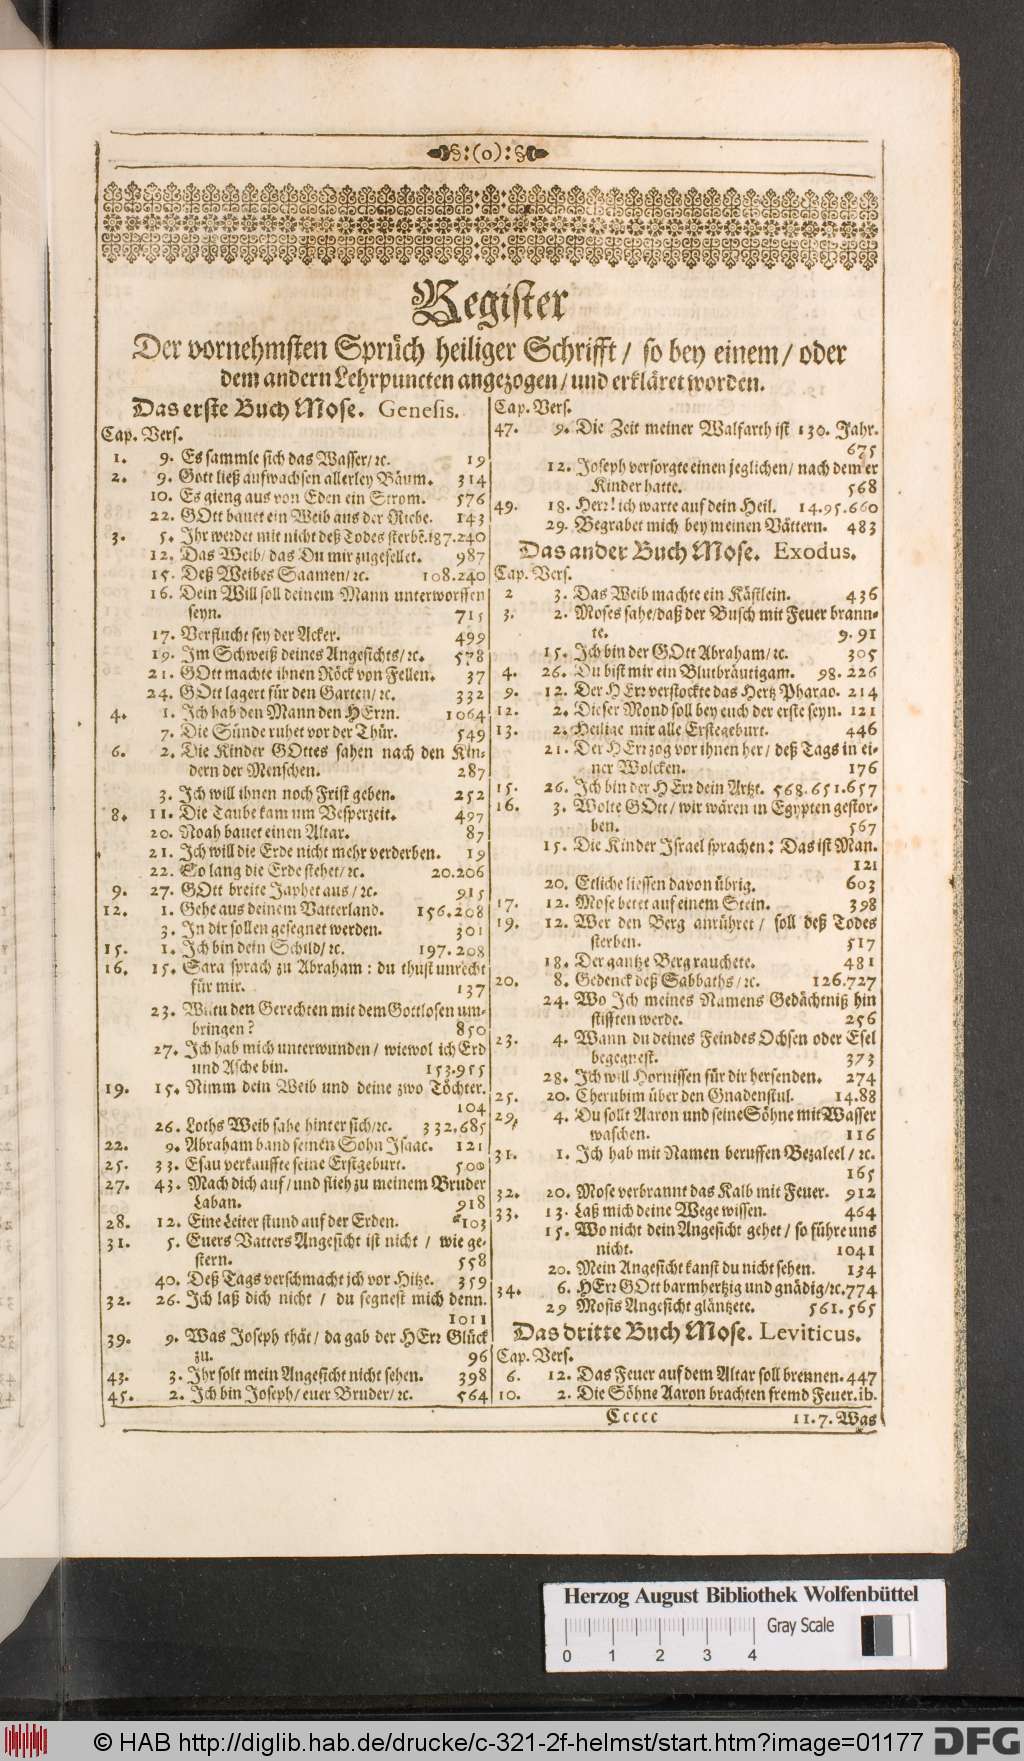 §:(o):§
Register
Der vornehmsten Sprüch heiliger Schrifft / so bey einem / oder
dem andern Lehrpuncten angezogen / und erkläret worden.
Das erste Buch Mose. Genesis.
Cap. Vers.
1. 9. Es sammle sich das Wasser/ ꝛc. 19
2. 9. Gott ließ aufwachsen allerley Bäum. 314
10. Es gieng aus von Eden ein Strom. 576
22. GOtt bauet ein Weib aus der Riebe. 143
3. 5. Ihr werdet mit nicht deß Todes sterbẽ. 187.240
12. Das Weib/ das Du mir zugesellet. 987
15. Deß Weibes Saamen/ ꝛc. 108.240
16. Dein Will soll deinem Mann unterworffen
seyn. 715
17. Verflucht sey der Acker. 499
19. Im Schweiß deines Angesichts/ ꝛc. 578
21. GOtt machte ihnen Röck von Fellen. 37
24. GOtt lagert für den Garten/ ꝛc. 332
4. 1. Ich hab den Mann den HErrn. 1064
7. Die Sünde ruhet vor der Thür. 549
6. 2. Die Kinder GOttes sahen nach den Kin-
dern der Menschen. 287
3. Ich will ihnen noch Frist geben. 252
8. 11. Die Taube kam um Vesperzeit. 497
20. Noah bauet einen Altar. 87
21. Ich will die Erde nicht mehr verderben. 19
22. So lang die Erde stehet/ ꝛc. 20.206
9. 27. GOtt breite Japhet aus / ꝛc. 915
12. 1. Gehe aus deinem Vatterland. 156.208
3. In dir sollen gesegnet werden. 301
15. 1. Ich bin dein Schild/ ꝛc. 197.208
16. 15. Sara sprach zu Abraham: du thust unrecht
für mir. 137
23. Wiltu den Gerechten mit dem Gottlosen um-
bringen? 850
27. Ich hab mich unterwunden / wiewol ich Erd
und Asche bin. 153.955
19. 15. Nimm dein Weib und deine zwo Töchter.
104
26. Loths Weib sahe hinter sich/ ꝛc. 332.685
22. 9. Abraham band seinen Sohn Isaac. 121
25. 33. Esau verkauffte seine Erstgeburt. 500
27. 43. Mach dich auf / und flieh zu meinem Bruder
Laban. 918
28. 12. Eine Leiter stund auf der Erden. 103
31. 5. Euers Vatters Angesicht ist nicht / wie ge-
stern. 558
40. Deß Tags verschmacht ich vor Hitze. 359
32. 26. Ich laß dich nicht / du segnest mich denn.
1011
39. 9. Was Joseph thät / da gab der HErr Glück
zu. 96
43. 3. Ihr solt mein Angesicht nicht sehen. 398
45. 2. Ich bin Joseph/ euer Bruder/ ꝛc. 564
Cap. Vers.
47. 9. Die Zeit meiner Walfarth ist 130. Jahr.
675
12. Joseph versorgte einen jeglichen/ nach dem er
Kinder hatte. 568
49. 18. Herr! ich warte auf dein Heil. 14.95.660
29. Begrabet mich bey meinen Vättern. 483
Das ander Buch Mose. Exodus.
Cap. Vers.
2 3. Das Weib machte ein Kästlein. 436
3. 2. Moses sahe/ daß der Busch mit Feuer brann-
te. 9.91
15. Ich bin der GOtt Abraham/ ꝛc. 305
4. 26. Du bist mir ein Blutbräutigam. 98.226
9. 12. Der HErr verstockte das Hertz Pharao. 214
12. 2. Dieser Mond soll bey euch der erste seyn. 121
13. 2. Heilige mir alle Erstegeburt. 446
21. Der HErr zog vor ihnen her/ deß Tags in ei-
ner Wolcken. 176
15. 26. Ich bin der HErr dein Artzt. 568.651.657
16. 3. Wolte GOtt / wir wären in Egypten gestor-
ben. 567
15. Die Kinder Israel sprachen: Das ist Man.
121
20. Etliche liessen davon übrig. 603
17. 12. Mose betet auf einem Stein. 398
19. 12. Wer den Berg anrühret / soll deß Todes
sterben. 517
18. Der gantze Berg rauchete. 481
20. 8. Gedenck deß Sabbaths/ ꝛc. 126.727
24. Wo Ich meines Namens Gedächtniß hin
stifften werde. 256
23. 4. Wann du deines Feindes Ochsen oder Esel
begegnest. 373
28. Ich will Hornissen für dir hersenden. 274
25. 20. Cherubim über den Gnadenstul. 14.88
29. 4. Du sollt Aaron und seine Söhne mit Wasser
waschen. 116
31. 1. Ich hab mit Namen beruffen Bezaleel/ ꝛc.
165
32. 20. Mose verbrannt das Kalb mit Feuer. 912
33. 13. Laß mich deine Wege wissen. 464
15. Wo nicht dein Angesicht gehet / so führe uns
nicht. 1041
20. Mein Angesicht kanst du nicht sehen. 134
34. 6. HErr GOtt barmhertzig und gnädig/ ꝛc. 774
29 Mosis Angesicht gläntzete. 561.565
Das dritte Buch Mose. Leviticus.
Cap. Vers.
6. 12. Das Feuer auf dem Altar soll brennen. 447
10. 2. Die Söhne Aaron brachten fremd Feuer. ib.
Ccccc 11.7. Was
Herzog August Bibliothek Wolfenbüttel
Gray Scale
0 1 2 3 4
© HAB http://diglib.hab.de/drucke/c-321-2f-helmst/start.htm?image=01177
DFG